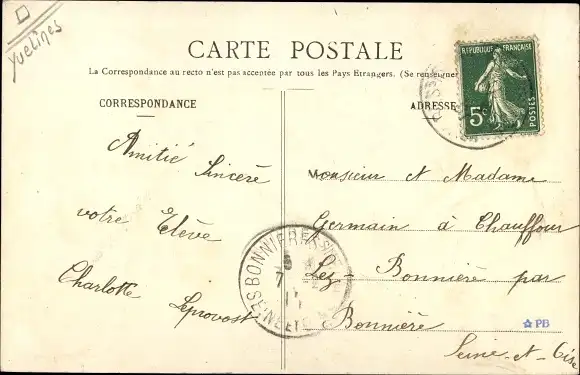 Yvelines
CARTE POSTALE
La Correspondance au recto n'est pas acceptée par tous les Pays Etrangers. (Se renseigner
CORRESPONDANCE
ADRESSE
REPUBLIQUE FRANÇAISE
5c
POSTES
Amitié Sincère
votre Elève
Charlotte Leprovost
Monsieur et Madame
Germain à Chauffour
Lez-Bonnière par
Bonnière
Seine-et-Oise
BONNIERES
PB